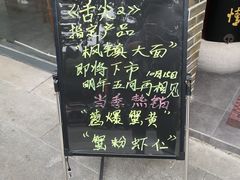 《舌尖2》
指定产品
"枫镇大面"
即将下市 10月15日
明年五月再相见
当季热销
"葱爆蟹黄"
"蟹粉虾仁"